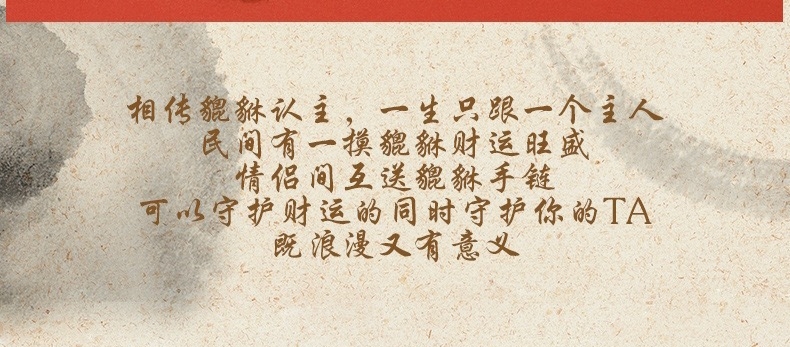 相传貔貅认主，一生只跟一个主人
民间有一摸貔貅财运旺盛
情侣间互送貔貅手链
可以守护财运的同时守护你的TA
既浪漫又有意义